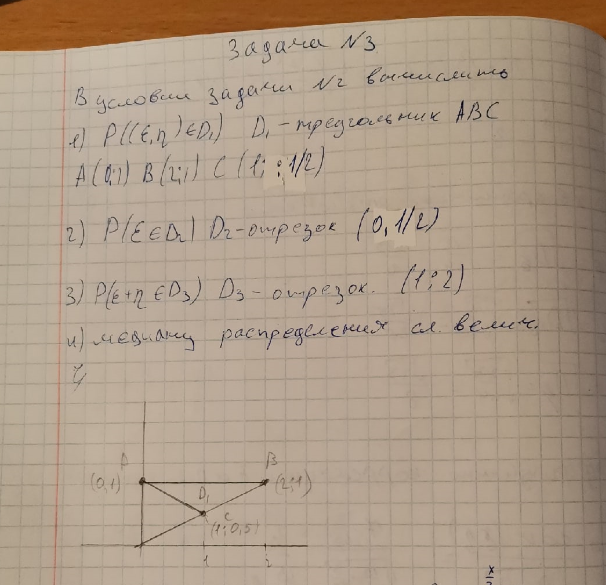 Задача №3
В условии задачи №2 вычислить
1) P((ξ,η)∈D₁) D₁-треугольник ABC
A(0;1) B(2;1) C(1;;1/2)
2) P(ξ∈D₂) D₂-отрезок (0,1/2)
3) P(ξ+η∈D₃) D₃-отрезок. (1;2)
4) медиану распределения сл. велич.
A
B
(0,1)
D₁
(2;1)
C
(1;0,5)
1 2
x